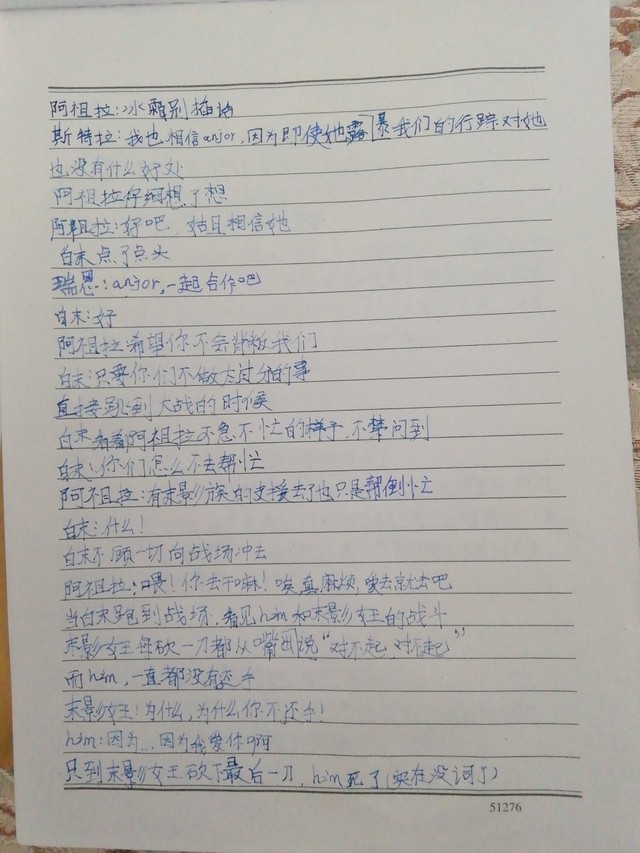 阿祖拉:冰霜别插话
斯特拉:我也相信anjor,因为即使她露暴我们的行踪对她
也没有什么好处
阿祖拉仔细想了想
阿祖拉:好吧,姑且相信她
白末点了点头
瑞恩:anjor,一起合作吧
白末:好
阿祖拉:希望你不会背叛我们
白末:只要你们不做太过分的事
直接跳到大战的时候
白末看着阿祖拉不急不忙的样子,不禁问到
白末:你们怎么不去帮忙
阿祖拉:有末影族的支援去了也只是帮倒忙
白末:什么!
白末不顾一切向战场冲去
阿祖拉:喂!你去干嘛!唉真麻烦,爱去就去吧
当白末跑到战场,看见him和末影女王的战斗
末影女王每砍一刀都从嘴里说“对不起,对不起”
而him,一直都没有还手
末影女王:为什么,为什么你不还手!
him:因为...因为我爱你啊
只到末影女王砍下最后一刀,him死了(实在没词了)
51276